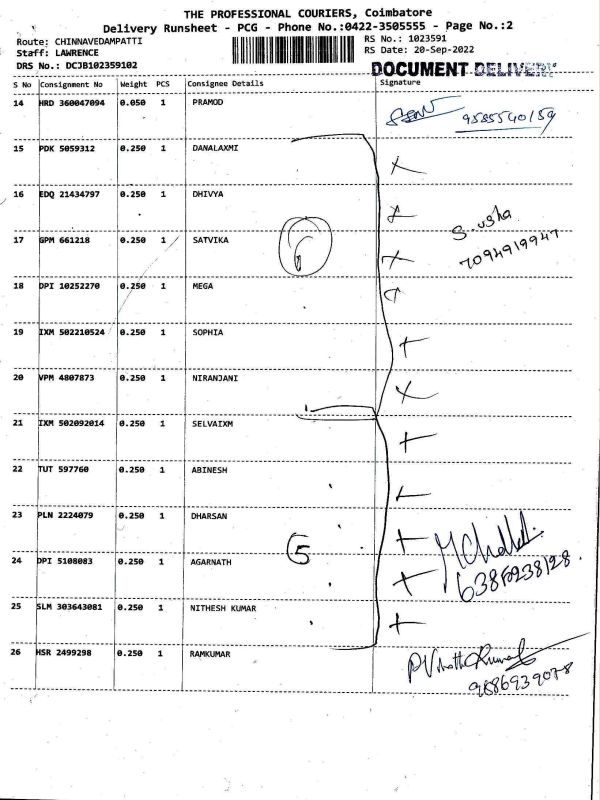 THE PROFESSIONAL COURIERS, Coimbatore
Delivery Runsheet - PCG - Phone No.:0422-3505555 - Page No.:2
Route: CHINNAVEDAMPATTI
RS No.: 1023591
Staff: LAWRENCE
RS Date: 20-Sep-2022
DRS No.: DCJB102359102
DOCUMENT DELIVERY
S No Consignment No Weight PCS Consignee Details Signature
14 HRD 360047094 0.050 1 PRAMOD
9585540159
15 PDK 5059312 0.250 1 DANALAXMI
16 EDQ 21434797 0.250 1 DHIVYA
S.usha
17 GPM 661218 0.250 1 SATVIKA
6
7094919947
18 DPI 10252270 0.250 1 MEGA
19 IXM 502210524 0.250 1 SOPHIA
20 VPM 4807873 0.250 1 NIRANJANI
21 IXM 502092014 0.250 1 SELVAIXM
22 TUT 597760 0.250 1 ABINESH
23 PLN 2224079 0.250 1 DHARSAN
5
24 DPI 5108083 0.250 1 AGARNATH
25 SLM 303643081 0.250 1 NITHESH KUMAR
26 HSR 2499298 0.250 1 RAMKUMAR